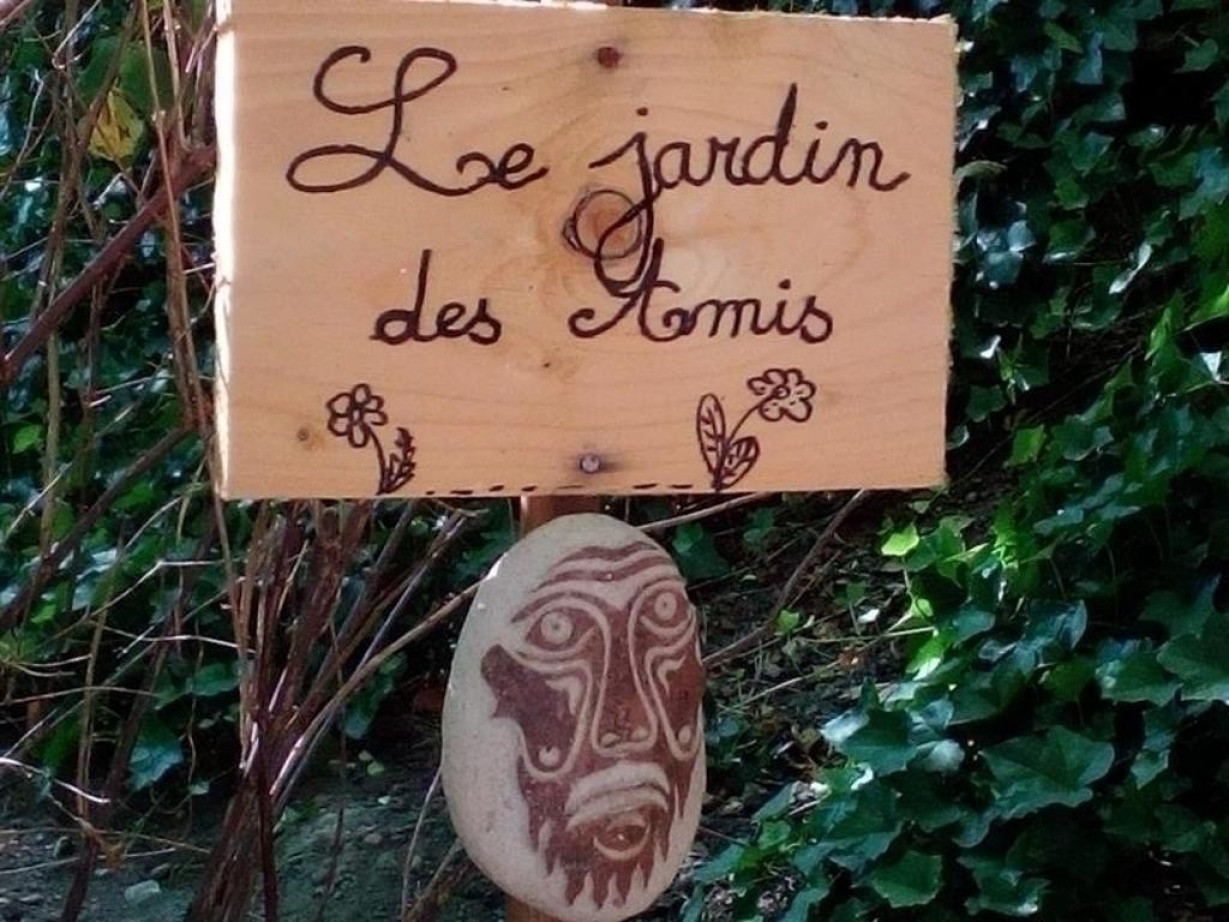 Le jardin
des Amis